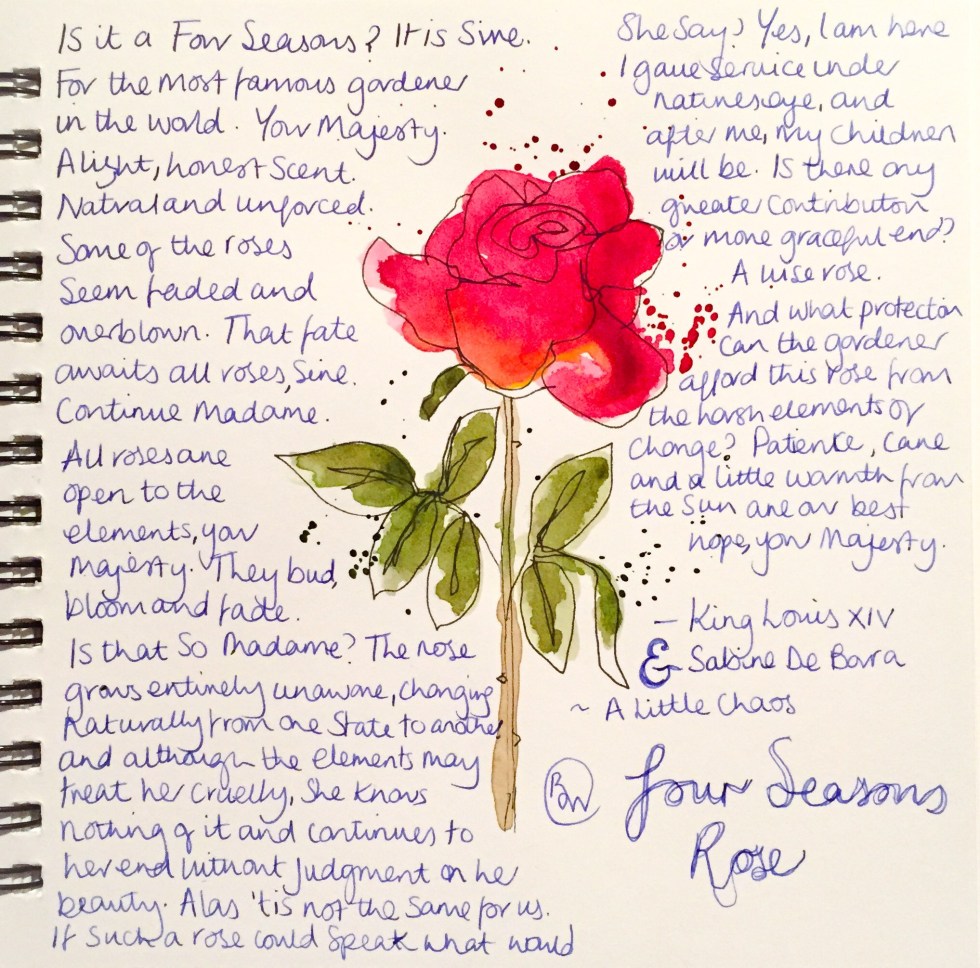 Is it a Four Seasons? It is Sire.
For the most famous gardener
in the world. Your Majesty.
A light, honest scent.
Natural and unforced.
Some of the roses
Seem faded and
overblown. That fate
awaits all roses, Sire.
Continue Madame.
All roses are
open to the
elements, your
majesty. They bud,
bloom and fade.
Is that so Madame? The rose
grows entirely unaware, changing
Naturally from one State to another
and although the elements may
treat her cruelly, She knows
nothing of it and continues to
her end without Judgment on her
beauty. Alas 'tis not the same for us.
If Such a rose could Speak what would
She Say? Yes, I am here
I gave Service under
natures eye, and
after me, my children
will be. Is there any
greater contributon
or more graceful end?
A wise rose.
And what protection
can the gardener
afford this rose from
the harsh elements of
Change? Patience, care
and a little warmth from
the Sun are our best
hope, your Majesty.
- King Louis XIV
& Sabine De Barra
~ A Little Chaos
Four Seasons
Rose